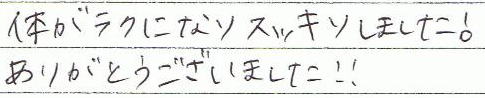 体がラクになりスッキリしました!
ありがとうございました!!